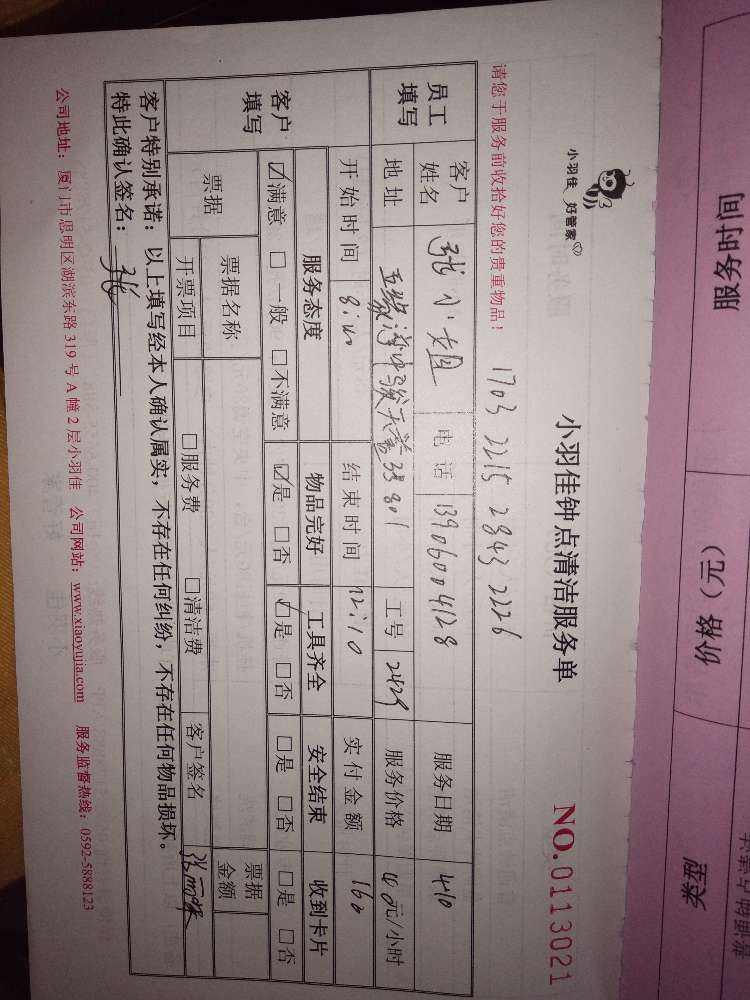 小羽佳 好管家
小羽佳钟点清洁服务单
NO.0113021
1703 2215 2843 2226
请您于服务前收拾好您的贵重物品！
员工填写
客户姓名 张小姐 电话 13906004128 服务日期 4.10
地址 五缘湾中骏天誉 801 工号 2429 服务价格 40元/小时
开始时间 8:10 结束时间 12:10 实付金额 160
客户填写
服务态度 物品完好 工具齐全 安全结束 收到卡片
☑满意 □一般 □不满意 ☑是 □否 ☑是 □否 □是 □否 □是 □否
票据 票据名称 票据金额
开票项目 □服务费 □清洁费 客户签名
客户特别承诺：以上填写经本人确认属实，不存在任何纠纷，不存在任何物品损坏。
特此确认签名：张
公司地址：厦门市思明区湖滨东路 319 号 A 幢 2 层小羽佳 公司网站：www.xiaoyujia.com 服务监督热线：0592-5888123
服务时间
价格（元）
类型